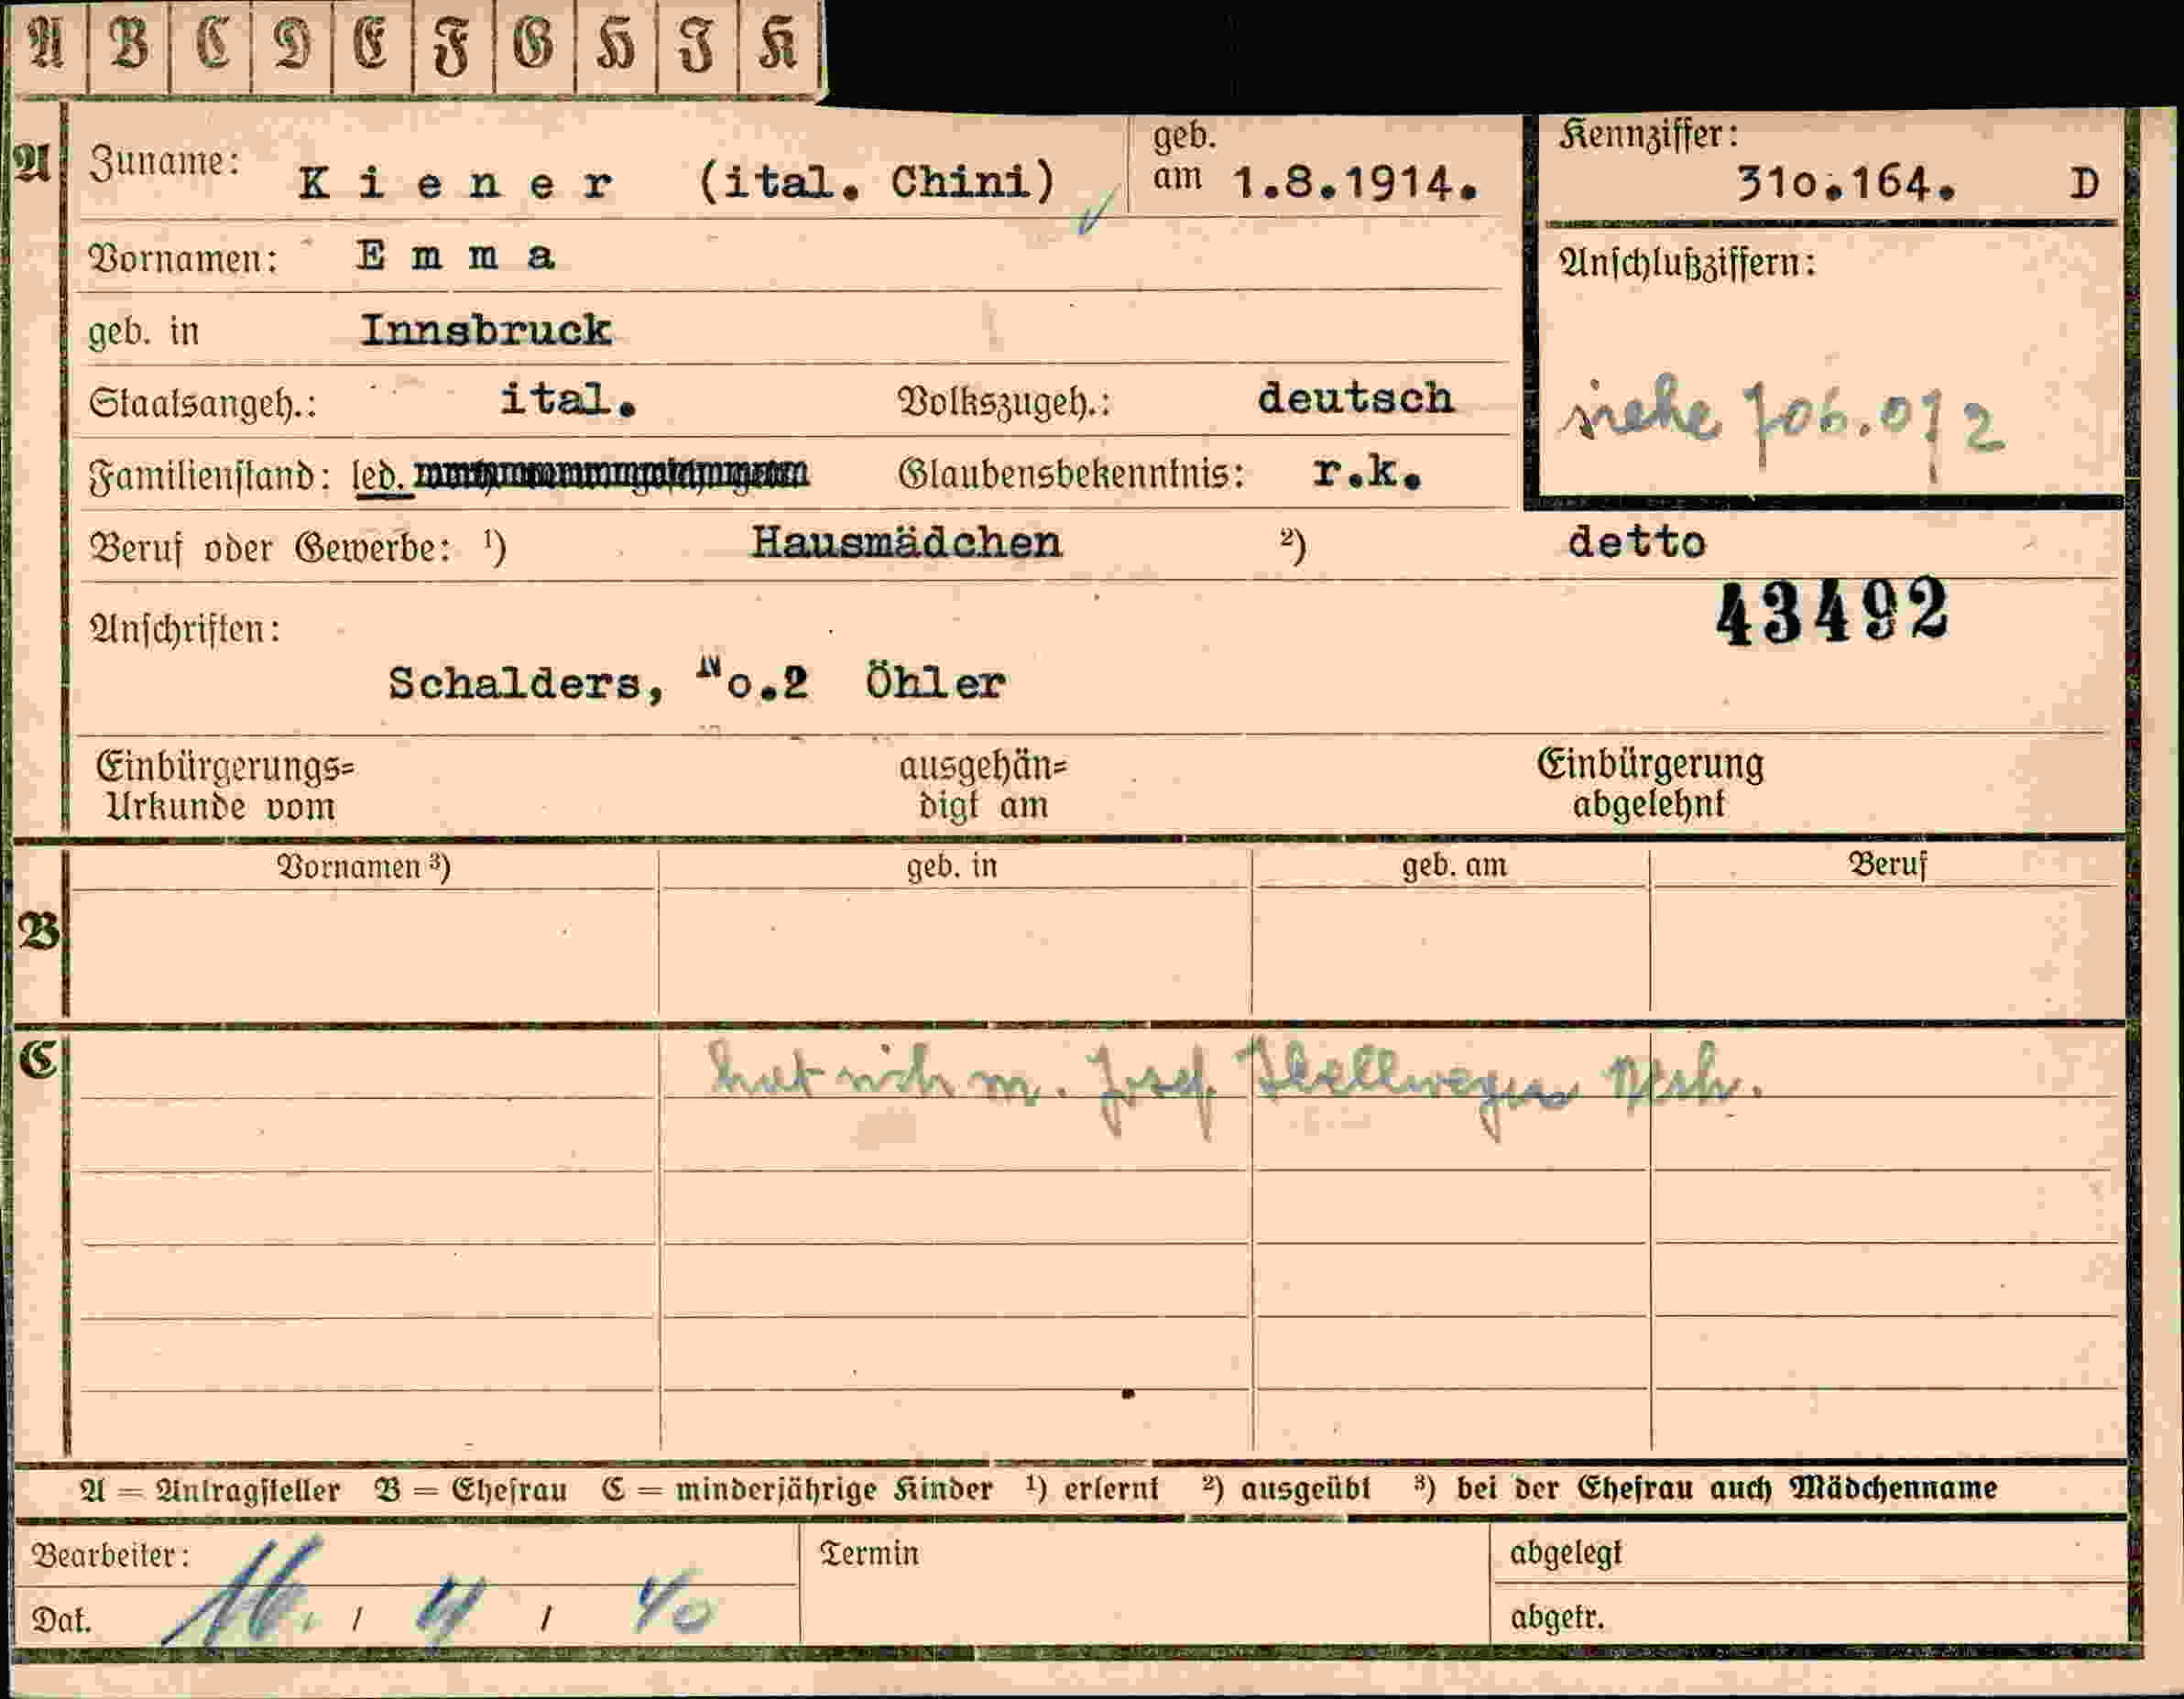 A B C D E F G H J K
A Zuname: Kiener (ital. Chini) geb. am 1.8.1914. Kennziffer: 310.164. D
Vornamen: Emma Anschlußziffern:
geb. in Innsbruck
Staatsangeh.: ital. Volkszugeh.: deutsch siehe 706.072
Familienstand: led. Glaubensbekenntnis: r.k.
Beruf oder Gewerbe: ¹) Hausmädchen ²) detto
43492
Anschriften:
Schalders, No.2 Öhler
Einbürgerungs= ausgehän= Einbürgerung
Urkunde vom digt am abgelehnt
Vornamen ³) geb. in geb. am Beruf
B
C hat sich m. Josef Thellweger
A = Antragsteller B = Ehefrau C = minderjährige Kinder ¹) erlernt ²) ausgeübt ³) bei der Ehefrau auch Mädchenname
Bearbeiter: Termin abgelegt
Dat. 16. / 4 / 40 abgetr.